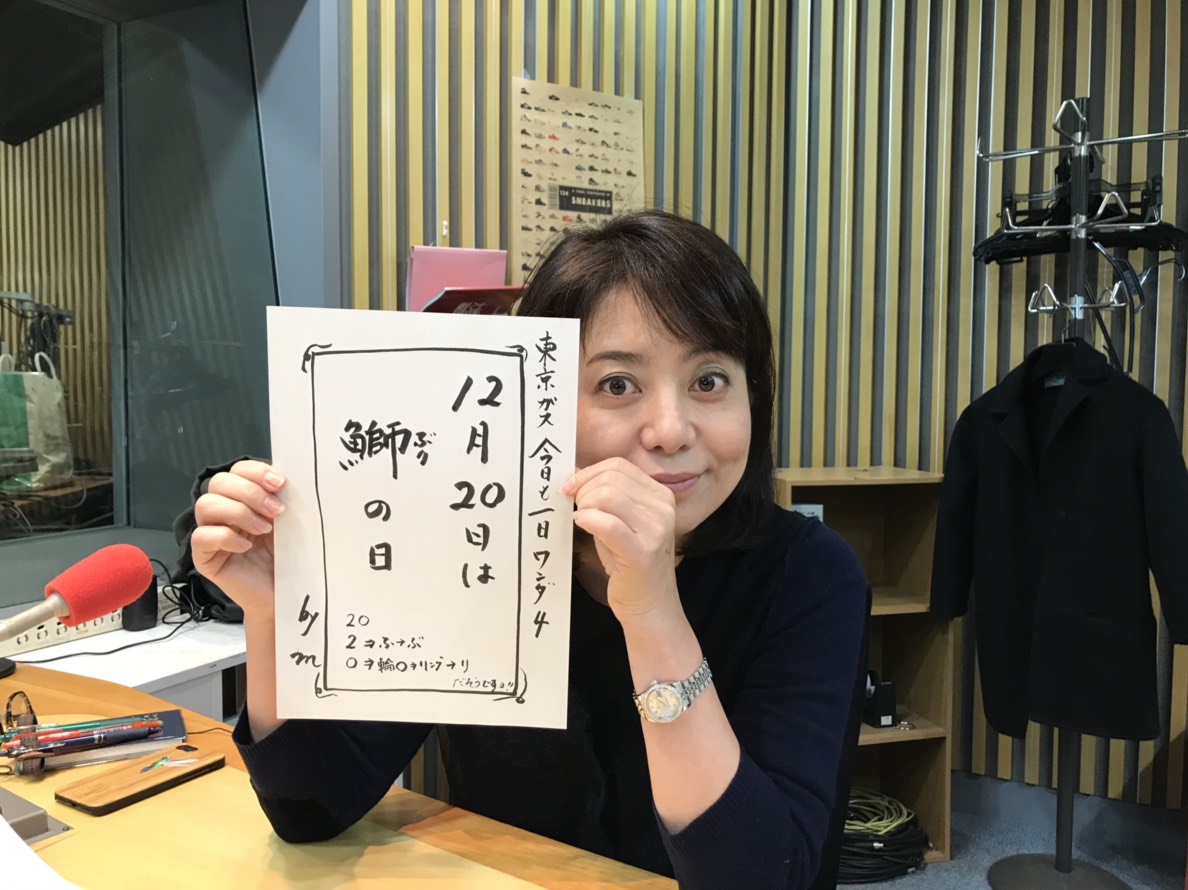 東京ガス 今日も一日ワンダ4
12月20日は
鰤の日
ぶり
20
2→ふ→ぶ
0→輪〇→リング→り
だそうですヨ!!
by m
SNEAKERS